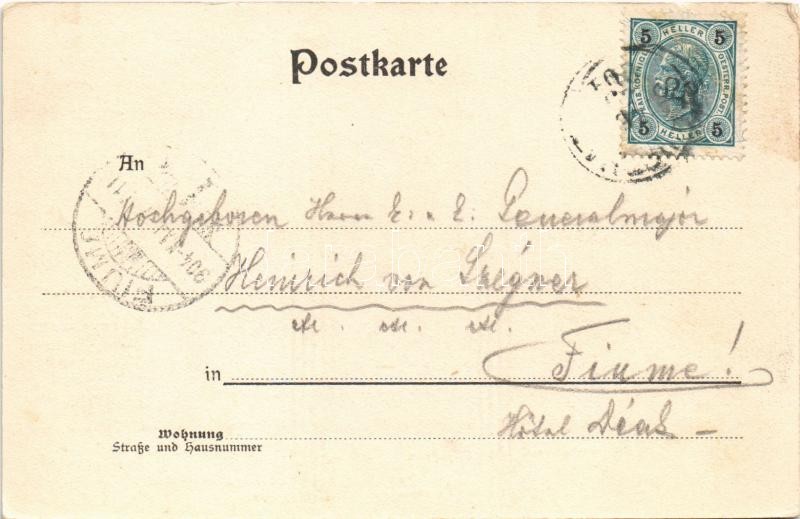 Postkarte
5 HELLER 5
KAIS. KOENIGL. OESTERR. POST.
5 HELLER 5
An
Hochgeboren Herrn E. v. E. Generalmajor
FIUME
904
Heinrich von
etc. etc. etc.
in Fiume!
Wohnung
Straße und Hausnummer
Hôtel Deák –